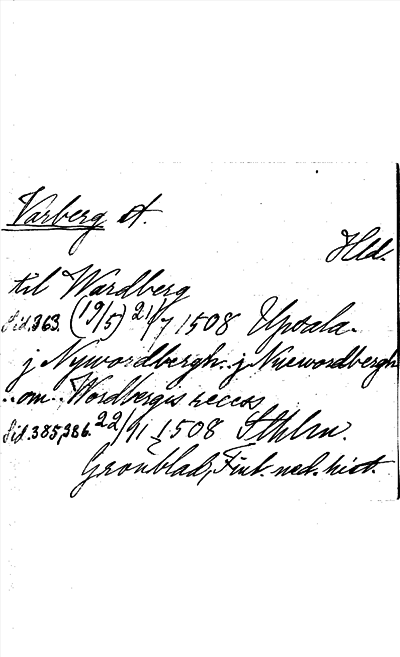 Varberg st.
Hld.
til Wardberg
Sid. 363. (19/5) 21/7 1508 Upsala.
j Nywordbergh. j Nyewordbergh
..om.. Wordbergs recess
Sid. 385, 386. 22/11 1508 Sthlm.
Grönblad, Finl. med. hist.